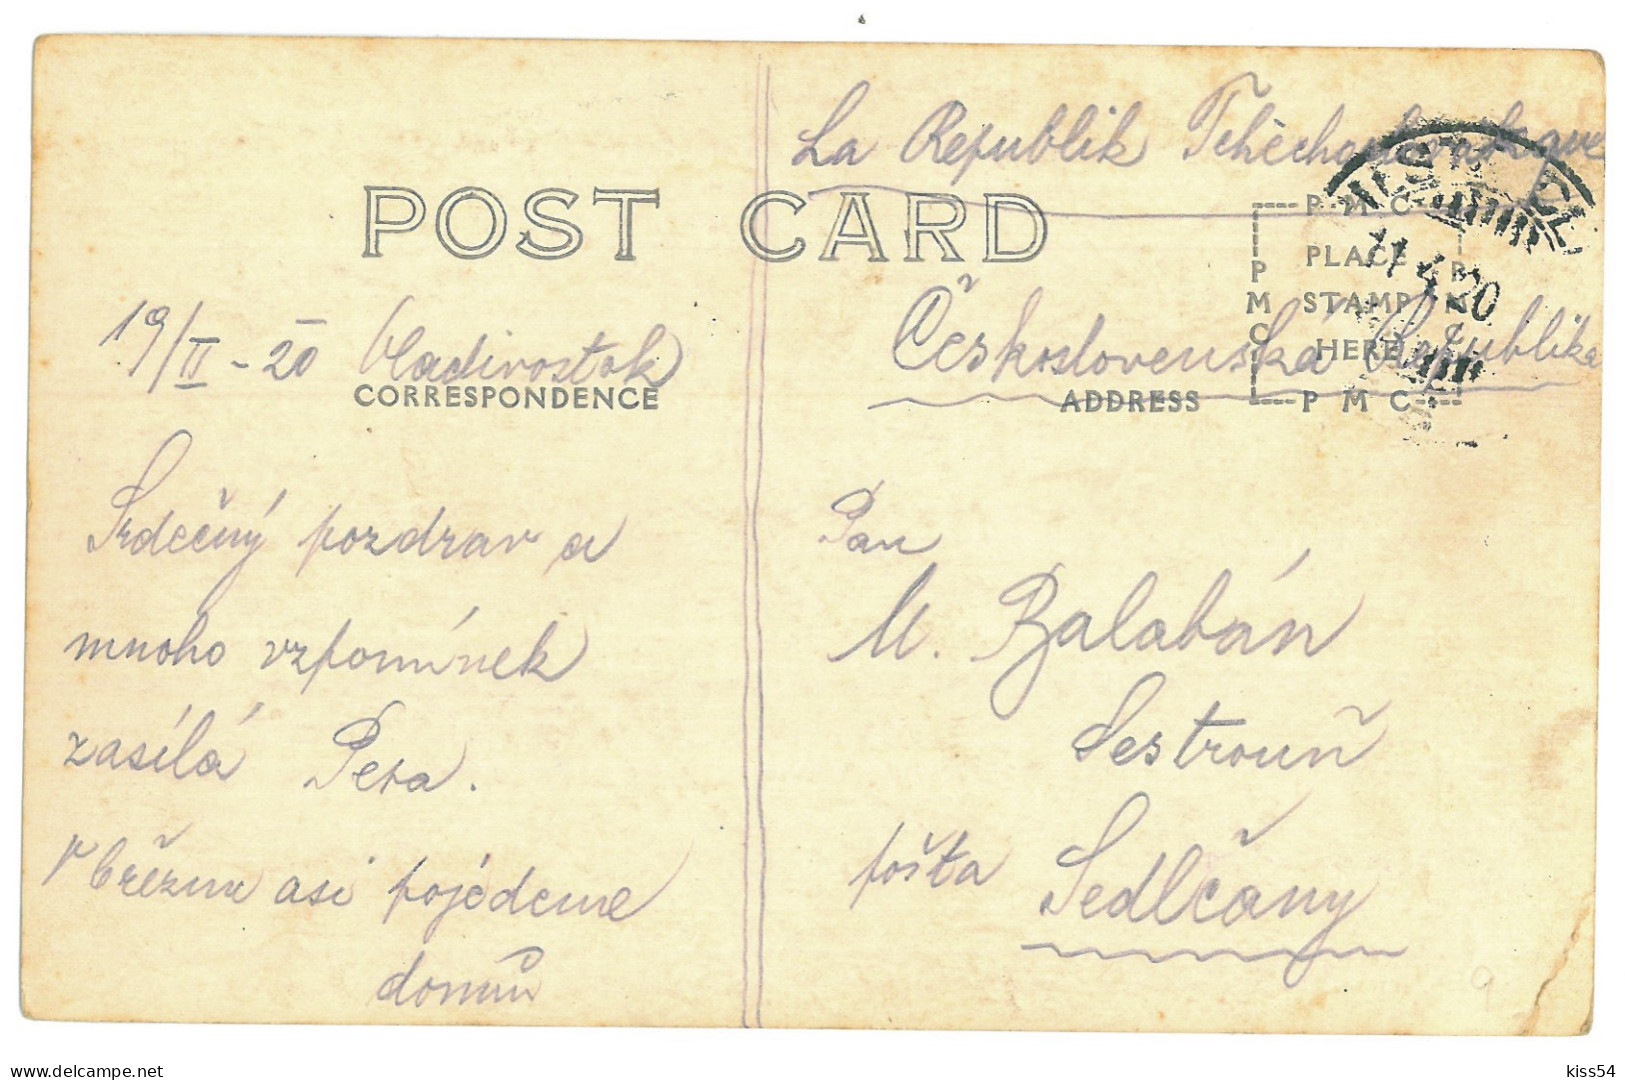 La Republik Tchéchoslovaque
POST CARD
P·M·C
PLACE
STAMP
HERE
P M C
P M C
P M C
11 20
19/II - 20 Vladivostok
Československá Republika
CORRESPONDENCE
ADDRESS
Srdečný pozdrav a
mnoho vzpomínek
zasílá Pera.
V březnu asi pojédeme
domů
Pan
M. Balabán
Sestrouň
pošta Sedlčany
9
delcampe.net
kiss54